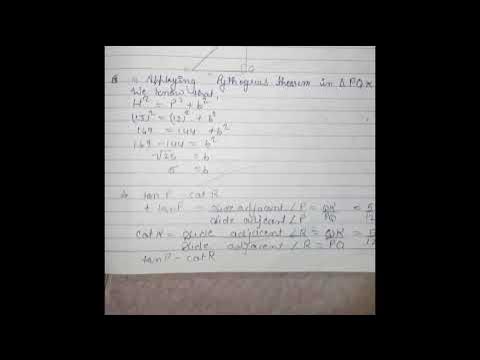 Applying Pythogrus theorem in Δ PQR
We know that,
H² = P² + b²
(13)² = (12)² + b²
169 = 144 + b²
169 - 144 = b²
√25 = b
5 = b
tan P - cot R
tan P = side adjacent ∠P = QR = 5
side adjcent ∠P PQ 12
cot R = side adjacent ∠R = QR = 5
side adjacent ∠R = PQ 12
tan P - cot R